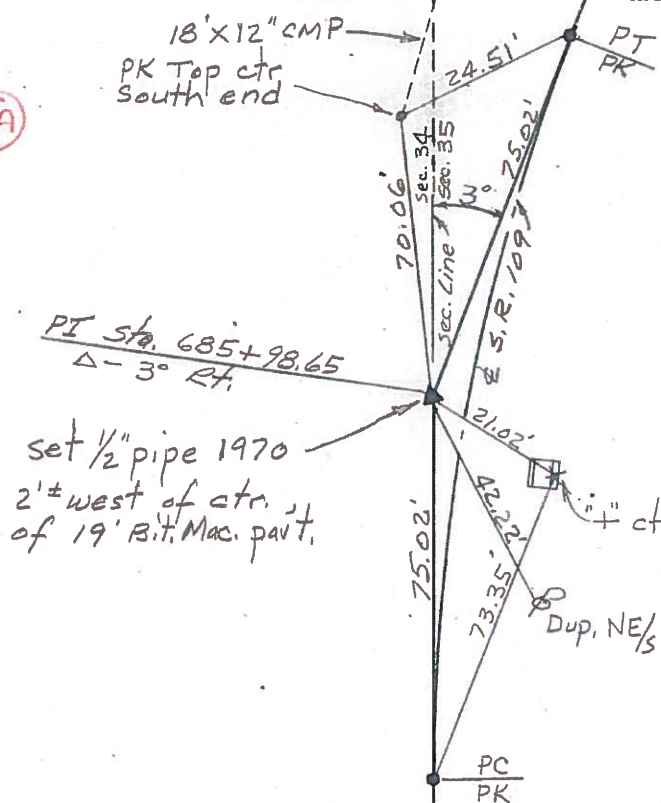 18'X12" CMP
PK Top ctr
South end
A
24.51'
PT
PK
Sec. 34
Sec. 35
75.02'
3°
70.06'
Sec. Line
℄ S.R. 109
PI Sta. 685+98.65
Δ - 3° Rt.
set 1/2" pipe 1970
2'± west of ctr.
of 19' Bit. Mac. pav't.
21.02'
"+" ct
42.22'
75.02'
73.35'
Dup. NE/s
PC
PK